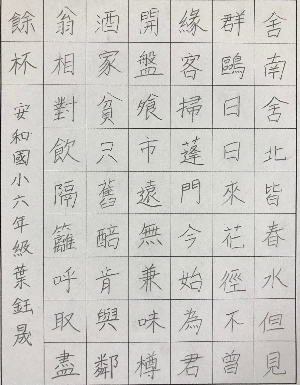 舍南舍北皆春水但見
群鷗日日來花徑不曾
緣客掃蓬門今始為君
開盤飧市遠無兼味樽
酒家貧只舊醅肯與鄰
翁相對飲隔籬呼取盡
餘杯
安和國小六年級葉鈺晟